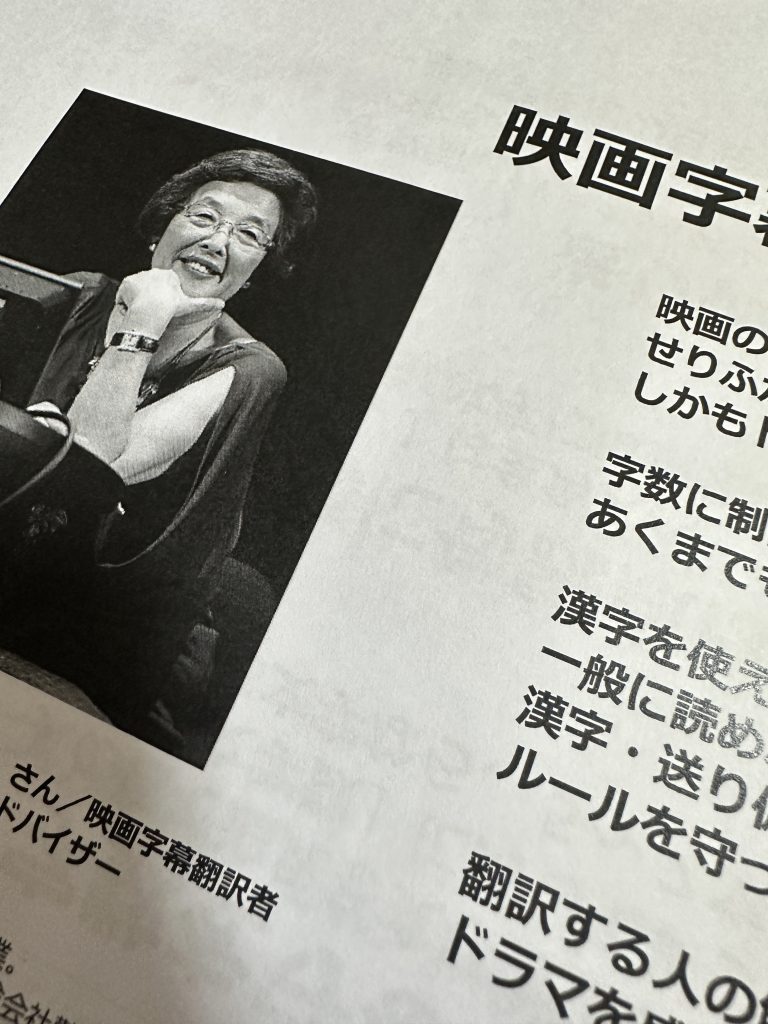 映画字幕
映画の
せりふが
しかも
字数に制
あくまでも
漢字を使え
一般に読め
漢字・送り仮
ルールを守っ
翻訳する人の
ドラマを
さん/映画字幕翻訳者
ドバイザー
業。
会社